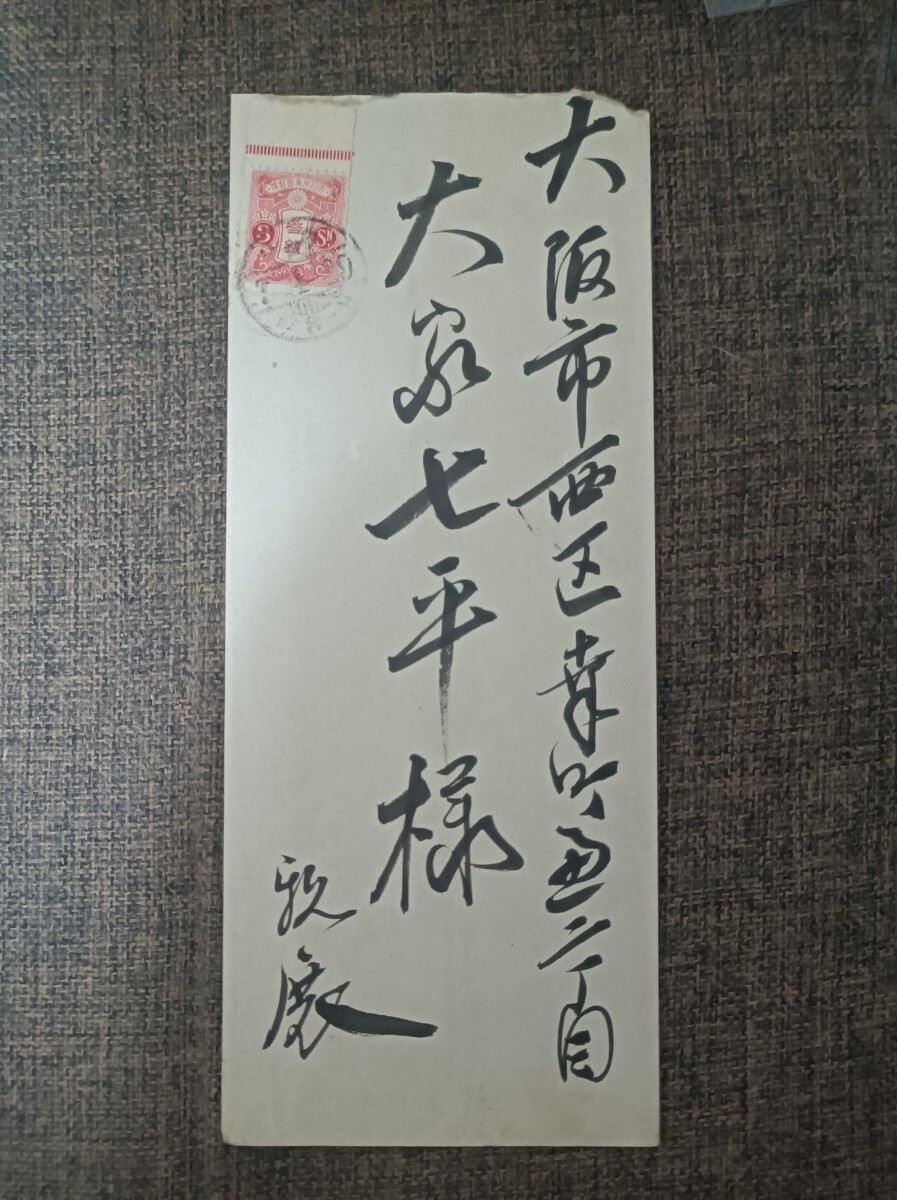 大阪市西区幸町通二丁目
大家七平様
親展
参銭
3
Sn